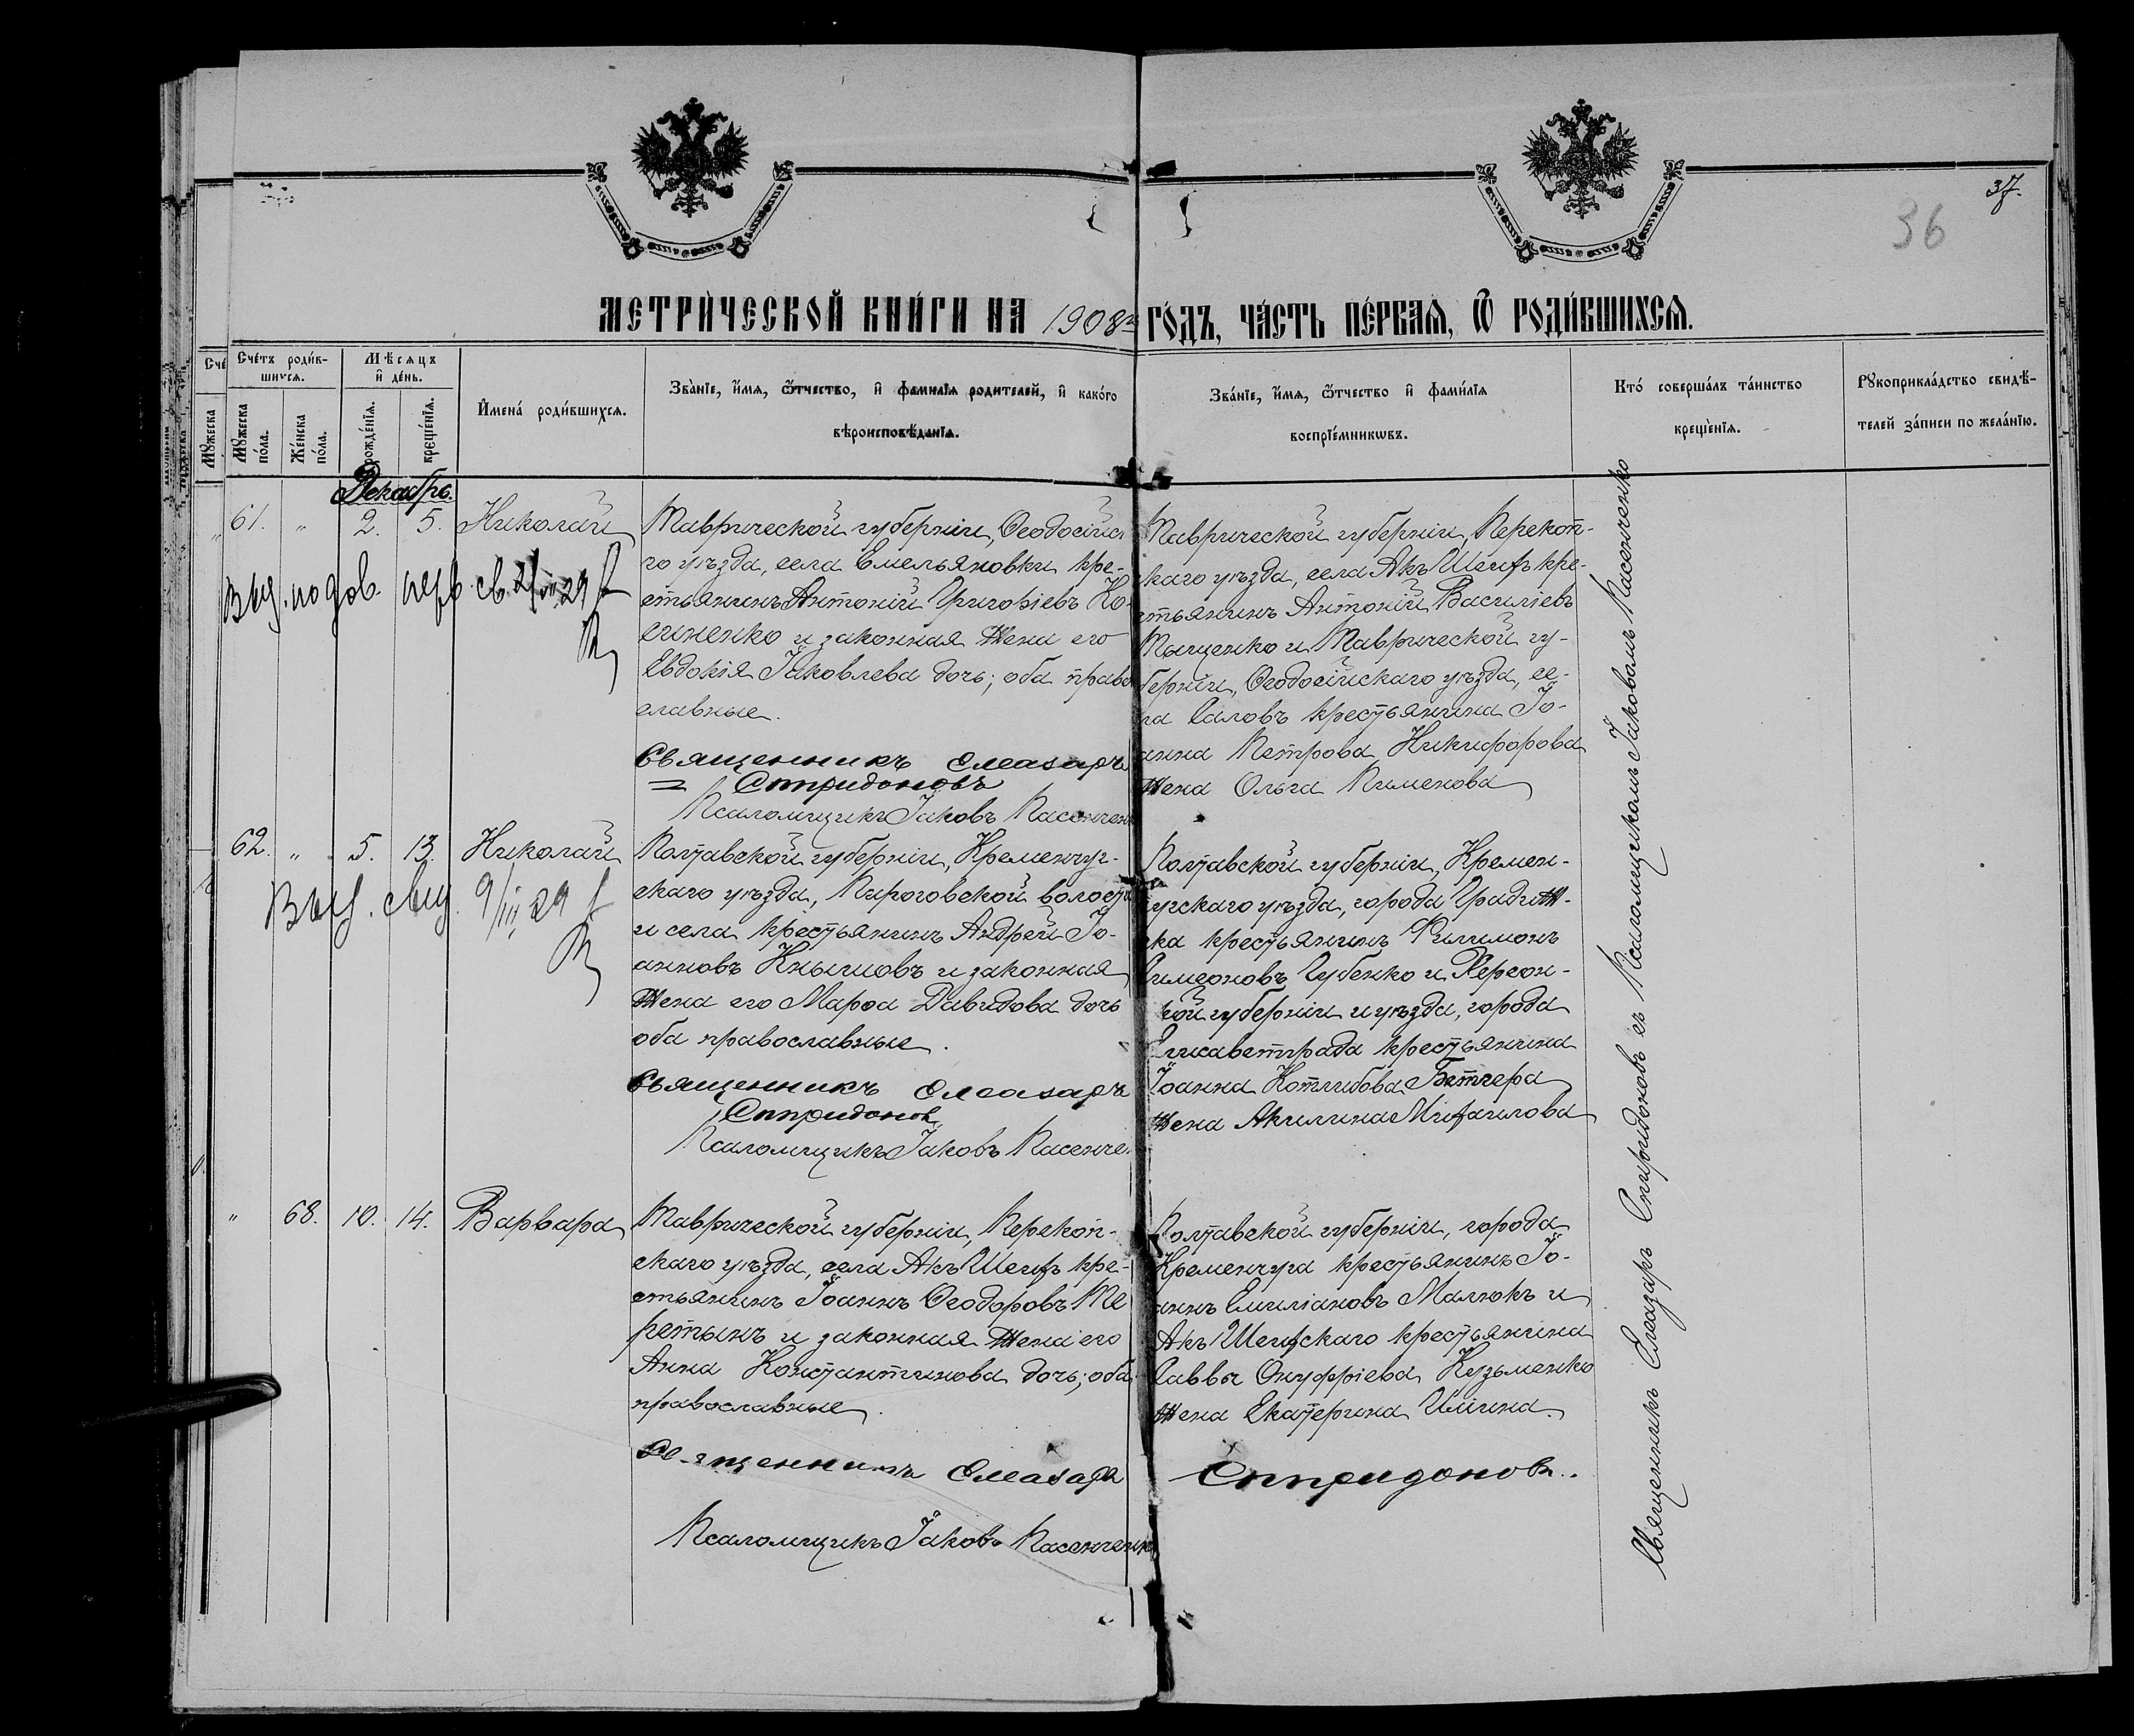 37.
36
МЕТРИЧЕСКОЙ КНИГИ НА 1908й ГОДЪ, ЧАСТЬ ПЕРВАЯ, Ѿ РОДИВШИХСЯ.
Счетъ родив-
шихся.
Мужеска пола.
Женска пола.
Мѣсяцъ и день.
рожденія.
крещенія.
Имена родившихся.
Званіе, имя, отчество, и фамилія родителей, и какого
вѣроисповѣданія.
Званіе, имя, отчество и фамилія
воспріемниковъ.
Кто совершалъ таинство
крещенія.
Рукоприкладство свидѣ-
телей записи по желанію.
Декабрь.
61. " 2. 5. Николай
Таврической губерніи, Ѳеодосійск
го уѣзда, села Емельяновки кре-
стьянинъ Антоній Григоріевъ Ко-
и законная жена его
Евдокія Іаковлева дочь; оба право
славные.
Священникъ Елеазаръ
Спиридоновъ
Псаломщикъ Іаковъ Пасенчен
Таврической губерніи, Перекоп-
скаго уѣзда, села Акъ Шеихъ кре-
стьянинъ Антоній Василіевъ
Тыщенко и Таврической гу-
берніи, Ѳеодосійскаго уѣзда, се-
ла Саловъ крестьянина Іо-
анна Петрова Никифорова
жена Ольга Пименова
62. " 5. 13. Николай
Выд. 9/III 29
Полтавской губерніи, Кременчуг-
скаго уѣзда, Пироговской волости
и села крестьянинъ Андрей Іо-
анновъ Кнышовъ и законная
жена его Марѳа Давидова дочь
оба православные.
Священникъ Елеазаръ
Спиридонов
Псаломщикъ Іаковъ Пасенче
Полтавской губерніи, Кремен-
чугскаго уѣзда, города Градиж-
ска крестьянинъ Филимонъ
Симеоновъ Губенко и Херсон-
ской губерніи и уѣзда, города
Елисаветграда крестьянина
Іоанна Котлибова Бетхера
жена Акилина Михаилова
" 68. 10. 14. Варвара
Таврической губерніи, Перекоп-
скаго уѣзда, села Акъ Шеихъ кре-
стьянинъ Іоаннъ Ѳеодоровъ Те
ретынъ и законная жена его
Анна Константинова дочь; оба
православные.
Священникъ Елеазаръ Спиридоновъ.
Псаломщикъ Іаковъ Пасенченко
Полтавской губерніи, города
Кременчуга крестьянинъ Іо-
аннъ Емиліановъ Малюкъ и
Акъ Шеихскаго крестьянина
Саввы Онуфріева Кузьменко
жена Екатерина Иліина.
Священникъ Елеазаръ Спиридоновъ съ Псаломщикомъ Іаковомъ Пасенченко